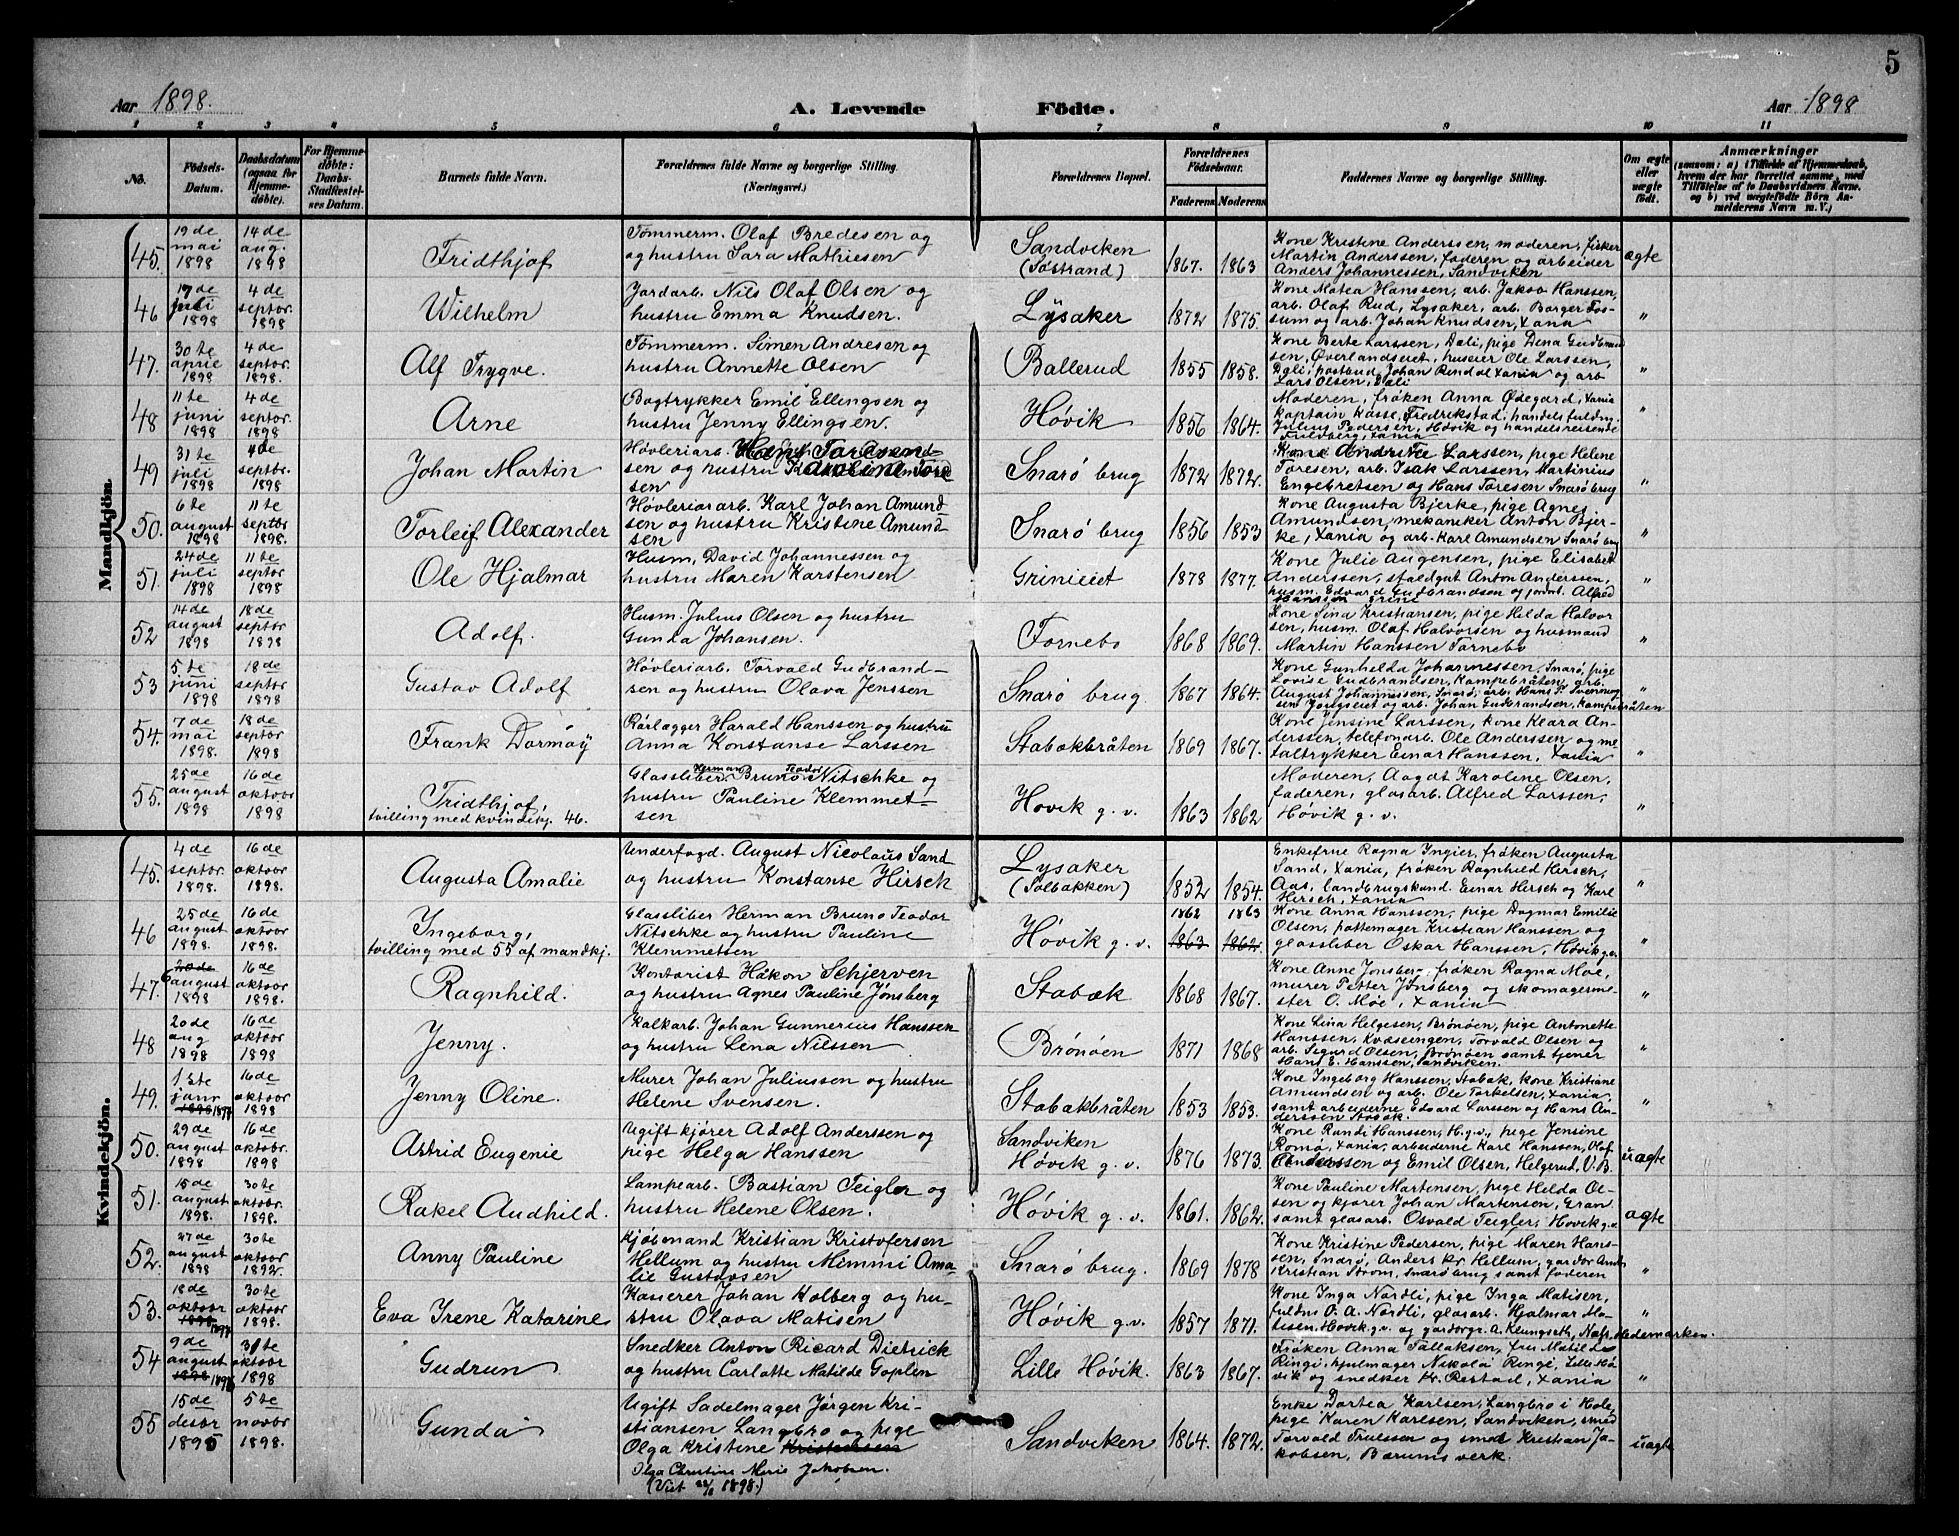 5
Aar 1898. A. Levende Födte. Aar 1898
1 2 3 4 5 6 7 8 9 10 11
No.
Födsels-
Datum.
Daabsdatum
(ogsaa for
Hjemme-
døbte).
For Hjemme-
døbte:
Daabs-
Stadfæstel-
ses Datum.
Barnets fulde Navn.
Forældrenes fulde Navne og borgerlige Stilling.
(Næringsvei.)
Forældrenes Bopæl.
Forældrenes
Födselsaar.
Faderens Moderens
Faddernes Navne og borgerlige Stilling.
Om ægte
eller
uægte
født.
Anmærkninger
(saasom: a) i Tilfælde af Hjemmedaab,
hvem der har forrettet samme, med
Tilföielse af to Daabsvidners Navne,
og b) ved uægtefödte Börn An-
melderens Navn m. V.)
Mandkjön.
45. 19de mai 1898 14de aug. 1898 Fridthjof
Tømmerm. Olaf Bredesen og
og hustru Sara Mathiesen
Sandviken
(Søstrand)
1867. 1863
Kone Kristine Anderssen, moderen, fisker
Martin Anderssen, faderen og arbeider
Anders Johannessen, Sandviken
ægte
46 17de juli 1898 4de septbr. 1898 Wilhelm
Jordarb. Nils Olaf Olsen og
hustru Emma Knudsen.
Lysaker 1872 1875.
Kone Matea Hanssen, arb. Jakob Hanssen,
arb. Olaf Rud, Lysaker, arb. Borger Fos-
sum og arb. Johan Knudsen, Xania
"
47. 30te april 1898 4de septbr. 1898. Alf Trygve.
Tømmerm. Simen Andresen og
hustru Annette Olsen
Ballerud 1855 1858.
Kone Berte Larssen, Dæli, pige Dena Gudbrand
sen, Øverlandseiet, huseier Ole Larssen,
Dæli, postbud Johan Rendal Xania og arb
Lars Olsen, Dæli
"
48 11te juni 1898 4de septbr. 1898 Arne
Bogtrykker Emil Ellingsen og
hustru Jenny Ellingsen.
Høvik 1856 1864.
Moderen, frøken Anna Ødegard, Xania
kaptain Kasse, Fredrikstad, handelsfuldm.
Julius Pedersen, Høvik og handelsreisende
Xania
"
49 31te juli 1898 4de septbr. 1898 Johan Martin
Høvleriarb. Hans
sen og hustru Karoline Tore
sen
Snarø brug 1872 1872.
Kone Larssen, pige Helene
Toresen, arb. Isak Larssen, Martinius
Engebretsen og Hans Toresen Snarø brug
"
50. 6te august 1898 11te septbr 1898. Torleif Alexander
Høvleriarb. Karl Johan Amund-
sen og hustru Kristine Amund-
sen
Snarø brug 1856 1853
Kone Augusta Bjerke, pige Agnes
Amundsen, mekaniker Anton Bjer-
ke, Xania og arb. Karl Amundsen Snarø brug
"
51. 24de juli 1898 11te septbr 1898 Ole Hjalmar
Husm. David Johannessen og
hustru Maren Karstensen
Grinieiet 1878 1877.
Kone Julie Augensen, pige Elisabet
Anderssen, staldgut Anton Anderssen,
husm. Edvard Gudbrandsen og Alfred
Hanssen Grini
"
52 14de august 1898 18de septbr 1898 Adolf.
Husm. Julius Olsen og hustru
Gunda Johansen.
Fornebo 1868 1869.
Kone Lina Kristiansen, pige Hilda Halvor
sen, husm. Olaf Halvorsen og husmand
Martin Hanssen Fornebo
"
53 5te juni 1898 18de septbr 1898 Gustav Adolf
Høvleriarb. Torvald Gudbrand-
sen og hustru Olava Jenssen
Snarø brug 1867 1864.
Kone Gunhilda Johannessen, Snarø, pige
Lovise Gudbrandsen, Kampebråten, arb.
August Johannessen, Snarø, arb. Hans P. Svennug
sen og arb. Johan Gudbrandsen, Kampebråten
"
54. 7de mai 1898. 18de septbr 1898 Frank Dormøy
Rørlægger Harald Hanssen og hustru
Anna Konstanse Larssen
Stabækbråten 1869 1867.
Kone Jensine Larssen, kone Klara An-
derssen, telefonarb. Ole Anderssen og me-
taltrykker Einar Hanssen, Xania
"
55. 25de august 1898 16de oktobr 1898 Fridthjof,
tvilling med kvindekj. 46.
Herman Teodor
Glassliber Bruno Nitschke og
hustru Pauline Klemmet-
sen
Høvik g.v. 1863 1862
Moderen, Aagot Karoline Olsen,
faderen, glasarb. Alfred Larssen,
Høvik g.v.
"
Kvindekjön.
45. 4de septbr. 1898. 16de oktobr 1898. Augusta Amalie
Underfogd. August Nicolaus Sand
og hustru Konstanse Hirsch
Lysaker
(Solbakken)
1852 1854.
Enkefrue Ragna Ingier, frøken Augusta
Sand, Xania, frøken Ragnhild Hirsch,
Aas, landbrugskand. Einar Hirsch og Karl
Hirsch, Xania
"
46 25de august 1898. 16de oktobr 1898. Ingeborg,
tvilling med 55 af mandkj.
Glassliber Herman Bruno Teodor
Nitschke og hustru Pauline
Klemmetsen
Høvik g.v. 1862 1863
1863 1862
Kone Anna Hanssen, pige Dagmar Emilie
Olsen, pottemager Kristian Hanssen og
glassliber Oskar Hanssen, Høvik g.v.
"
47. 20de 6 august 1898 16de oktobr 1898. Ragnhild.
Kontorist Håkon Schjerven
og hustru Agnes Pauline Jønsberg
Stabæk 1868 1867.
Kone Anne Jonsberg, frøken Ragna Moe,
murer Petter Jønsberg og skomagerme-
ster O. Moe, Xania
"
48 20de aug 1898 16de oktobr 1898 Jenny.
Kalkarb. Johan Gunnerius Hanssen
og hustru Lena Nilssen
Brønøen 1871 1868
Kone Lina Helgesen, Brønøen, pige Antonette
Hanssen, Torvald Olsen og
arb. Sigurd Olsen, Brønøen samt tjener
Hans E. Hanssen, Sandviken
"
49. 1ste janr 1898 1898 16de oktobr 1898 Jenny Oline.
Murer Johan Juliussen og hustru
Helene Svensen.
Stabækbråten 1853 1853.
Kone Ingeborg Hanssen, Stabæk, kone Kristiane
Amundsen og arb. Ole Torkelsen, Xania,
samt arbeiderne Edvard Larssen og Hans An-
derssen, Stabæk.
"
50. 29de august 1898 16de oktobr. 1898 Astrid Eugenie
Ugift kjører Adolf Anderssen og
pige Helga Hanssen
Sandviken
Høvik g.v.
1876 1873.
Kone Randi Hanssen, H.g.v., pige Jensine
Romø, Xania, arbeiderne Karl Hanssen, Olaf
Anderssen og Emil Olsen, Helgerud, V.B.
uægte
51. 15de august 1898. 30te oktobr. 1898. Rakel Audhild.
Lampearb. Bastian Teigler og
hustru Helene Olsen.
Høvik g.v. 1861. 1862.
Kone Pauline Martensen, pige Hilda Ol-
sen og kjører Johan Martinsen, Gran
samt glasarb. Osvald Teigler, Høvik g.v.
ægte
52. 27de august 1898 30te oktobr 1892. Anny Pauline
Kjøbmand Kristian Kristofersen
Hellum og hustru Mimmi Ama-
lie Gustavsen
Snarø brug. 1869 1878
Kone Kristine Pedersen, pige Maren Hans-
sen, Snarø, Anders Kr. Hellum,
Kristian Strøm, Snarø brug samt faderen
"
53. 18de oktobr 1898 1897 30te oktobr 1898. Eva Irene Katarine
Kasserer Johan Kolberg og hu-
stru Olava Matisen
Høvik g.v. 1857 1871.
Kone Inga Nordli, pige Inga Matisen,
fuldm. O. A. Nordli, glasarb. Hjalmar Ma-
tisen, Høvik g.v. og gårdbrgr. A. Klungseth, Næs, Hedemarken.
"
54 9de august 1898 1898 31te oktobr 1898 Gudrun
Snedker Anton Ricard Dietrick
og hustru Carlotte Matilde Goplen
Lille Høvik. 1863 1867.
Frøken Anna Tollaksen, fru Matilde
Ringi, hjulmager Nikolai Ringi, Lille Hø
vik og snedker Kr. Restad, Xania
"
55 15de desbr 1895 5te novbr 1898. Gunda
Ugift Sadelmager Jørgen Kri-
stiansen Langbro og pige
Olga Kristine Kristiansen
Olga Christine Marie Jakobsen.
(Viet 1898.)
Sandviken 1864. 1872.
Enke Dortea Karlsen, Langbro i Hole,
pige Karen Karlsen, Sandviken, smed
Torvald Truelssen og smed Kristian Ja-
kobsen, Bærums verk.
uægte